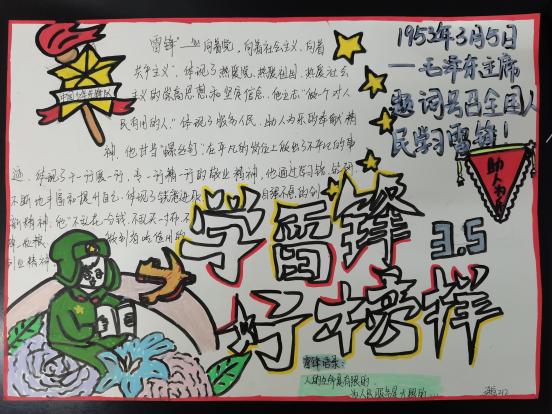 雷锋"一心向着党,向着社会主义,向着
共产主义",体现了热爱党、热爱祖国、热爱社会
主义的崇高思想和坚定信念,他立志"做一个对人
民有用的人",体现了服务人民、助人为乐的奉献精
神,他甘当"螺丝钉",在平凡的岗位上做出了不平凡的事
迹,体现了干一行爱一行、专一行精一行的敬业精神,他通过学习
不断地丰富和提升自己,体现了锐意进取 自强不息的创
新精神;他"不
创业精神。
1953年3月5日
——毛泽东主席
题词号召全国人
民学习雷锋!
助人为乐
学雷锋
3.5
好榜样
雷锋语录:
人的生命是有限的
为人民服务是无限的...